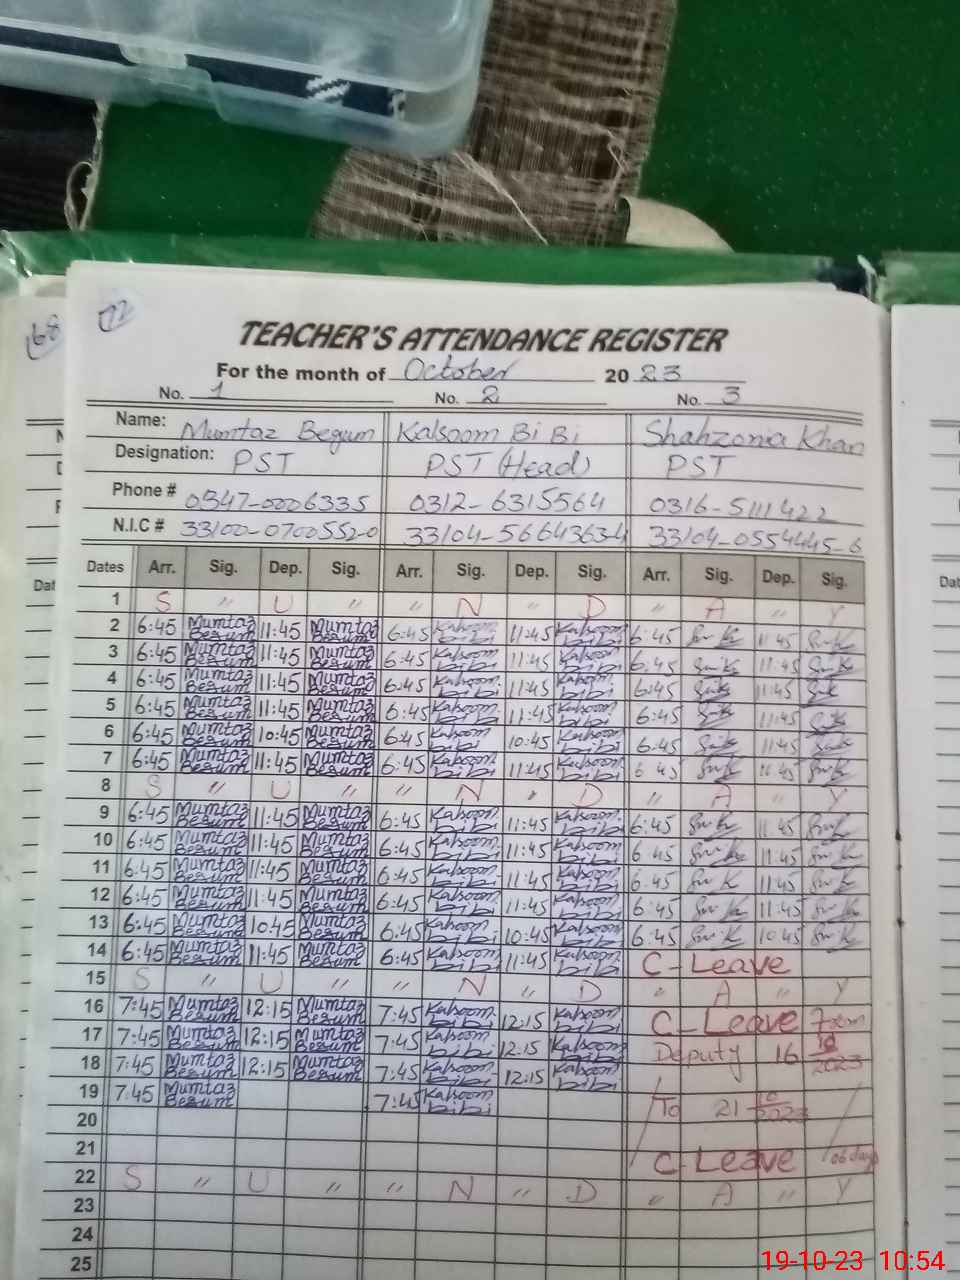 68
72
TEACHER'S ATTENDANCE REGISTER
For the month of October 2023
No. 1 No. 2 No. 3
Name: Mumtaz Begum Kalsoom Bi Bi Shahzonia Khan
Designation: PST PST (Head) PST
Phone # 0347-0006335 0312-6315564 0316-5111422
N.I.C # 33100-0700552-0 33104-5664363-4 33104-0554445-6
Dates Arr. Sig. Dep. Sig. Arr. Sig. Dep. Sig. Arr. Sig. Dep. Sig.
1 S " U " " N " D " A " Y
2 6:45 Mumtaz Begum 11:45 Mumtaz Begum 6:45 Kalsoom bibi 11:45 Kalsoom bibi 6:45 11:45
3 6:45 Mumtaz Begum 11:45 Mumtaz Begum 6:45 Kalsoom bibi 11:45 Kalsoom bibi 6:45 11:45
4 6:45 Mumtaz Begum 11:45 Mumtaz Begum 6:45 Kalsoom bibi 11:45 Kalsoom bibi 6:45 11:45
5 6:45 Mumtaz Begum 11:45 Mumtaz Begum 6:45 Kalsoom bibi 11:45 Kalsoom bibi 6:45 11:45
6 6:45 Mumtaz Begum 10:45 Mumtaz Begum 6:45 Kalsoom bibi 10:45 Kalsoom bibi 6:45 11:45
7 6:45 Mumtaz Begum 11:45 Mumtaz Begum 6:45 Kalsoom bibi 11:45 Kalsoom bibi 6:45
8 S " U " " N " D " A " Y
9 6:45 Mumtaz Begum 11:45 Mumtaz Begum 6:45 Kalsoom bibi 11:45 Kalsoom bibi 6:45 11:45
10 6:45 Mumtaz Begum 11:45 Mumtaz Begum 6:45 Kalsoom bibi 11:45 Kalsoom bibi 6:45 11:45
11 6:45 Mumtaz Begum 11:45 Mumtaz Begum 6:45 Kalsoom bibi 11:45 Kalsoom bibi 6:45 11:45
12 6:45 Mumtaz Begum 11:45 Mumtaz Begum 6:45 Kalsoom bibi 11:45 Kalsoom bibi 6:45 11:45
13 6:45 Mumtaz Begum 10:45 Mumtaz Begum 6:45 Kalsoom bibi 10:45 Kalsoom bibi 6:45 10:45
14 6:45 Mumtaz Begum 11:45 Mumtaz Begum 6:45 Kalsoom bibi 11:45 Kalsoom bibi C-Leave
15 S " U " " N " D " A " Y
16 7:45 Mumtaz Begum 12:15 Mumtaz Begum 7:45 Kalsoom bibi 12:15 Kalsoom bibi C-Leave
17 7:45 Mumtaz Begum 12:15 Mumtaz Begum 7:45 Kalsoom bibi 12:15 Kalsoom bibi Deputy 16 10 2023
18 7:45 Mumtaz Begum 12:15 Mumtaz Begum 7:45 Kalsoom bibi 12:15 Kalsoom bibi
19 7:45 Mumtaz Begum 7:45 Kalsoom bibi To 21 10 2023
20
21 C-Leave 06 days
22 S " U " " N " D " A " Y
23
24
25
19-10-23 10:54